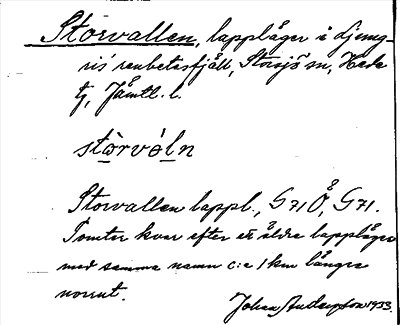 Storvallen, lappläger i Ljung-
ris' renbetesfjäll, Storsjö sn, Hede
tg, Jämtl. l.
stòrvóln
Storvallen lappl., G 71 Ö, G 71.
Tomter kvar efter ett äldre lappläger
med samma namn c:a 1 km längre
norrut.
Johan Andersson 1933.